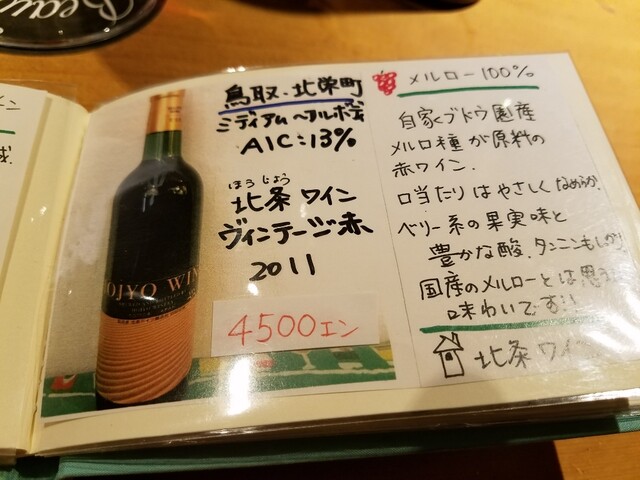 鳥取・北栄町
ミディアム〜フルボディ
Alc:13%
ほうじょう
北条ワイン
ヴィンテージ赤
2011
4500エン
OJYO WIN
メルロー100%
自家ブドウ園産
メルロ種が原料の
赤ワイン.
口当たりはやさしくなめらか.
ベリー系の果実味と
豊かな酸、タンニンも
国産のメルローとは思う
味わいです!!
北条ワイ